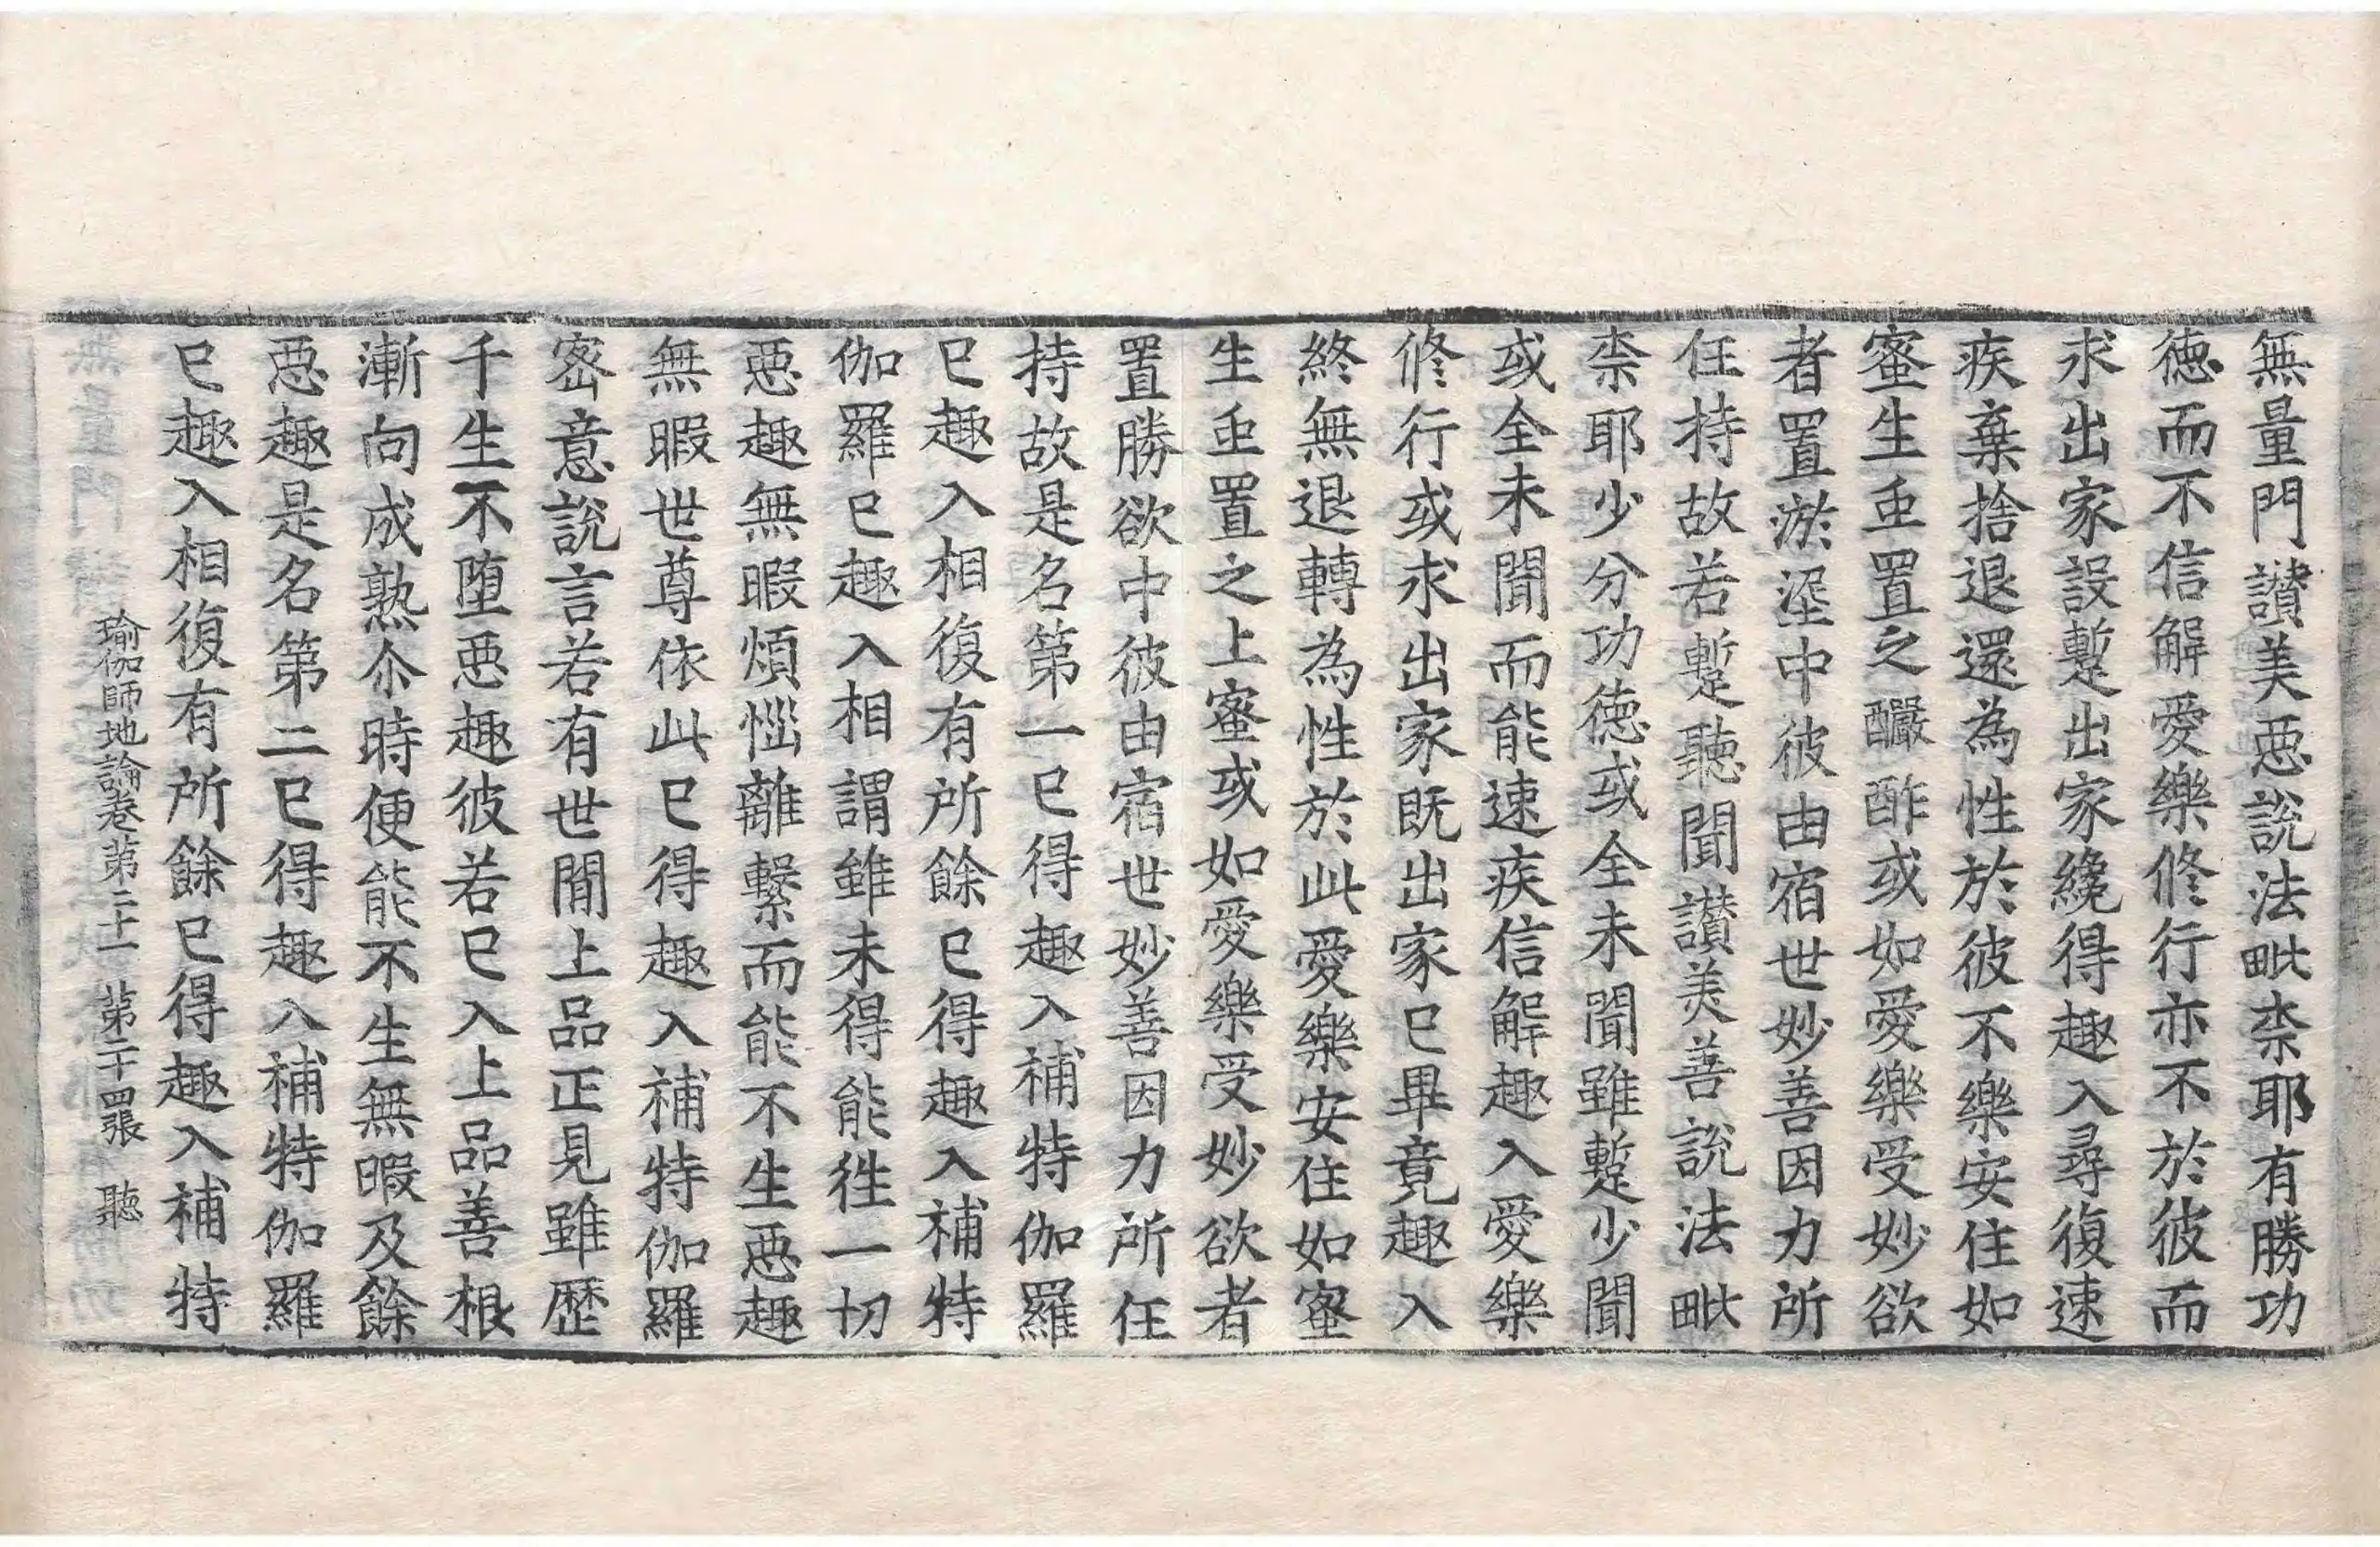 無量門讃美惡說法毗柰耶有勝功
德而不信解愛樂修行亦不於彼而
求出家設蹔出家纔得趣入尋復速
疾棄捨退還為性於彼不樂安住如
蜜生䖝置之釅酢或如愛樂受妙欲
者置淤埿中彼由宿世妙善因力所
任持故若蹔聽聞讃美善說法毗
柰耶少分功德或全未聞雖蹔少聞
或全未聞而能速疾信解趣入愛樂
修行或求出家既出家已畢竟趣入
終無退轉為性於此愛樂安住如蜜
生䖝置之上蜜或如愛樂受妙欲者
置勝欲中彼由宿世妙善因力所任
持故是名第一已得趣入補特伽羅
已趣入相復有所餘已得趣入補特
伽羅已趣入相謂雖未得能徃一切
惡趣無暇煩惱離繫而能不生惡趣
無暇世尊依此已得趣入補特伽羅
密意說言若有世間上品正見雖歷
千生不墮惡趣彼若已入上品善根
漸向成熟尒時便能不生無暇及餘
惡趣是名第二已得趣入補特伽羅
已趣入相復有所餘已得趣入補特
瑜伽師地論卷第二十一 第二十四張 聽